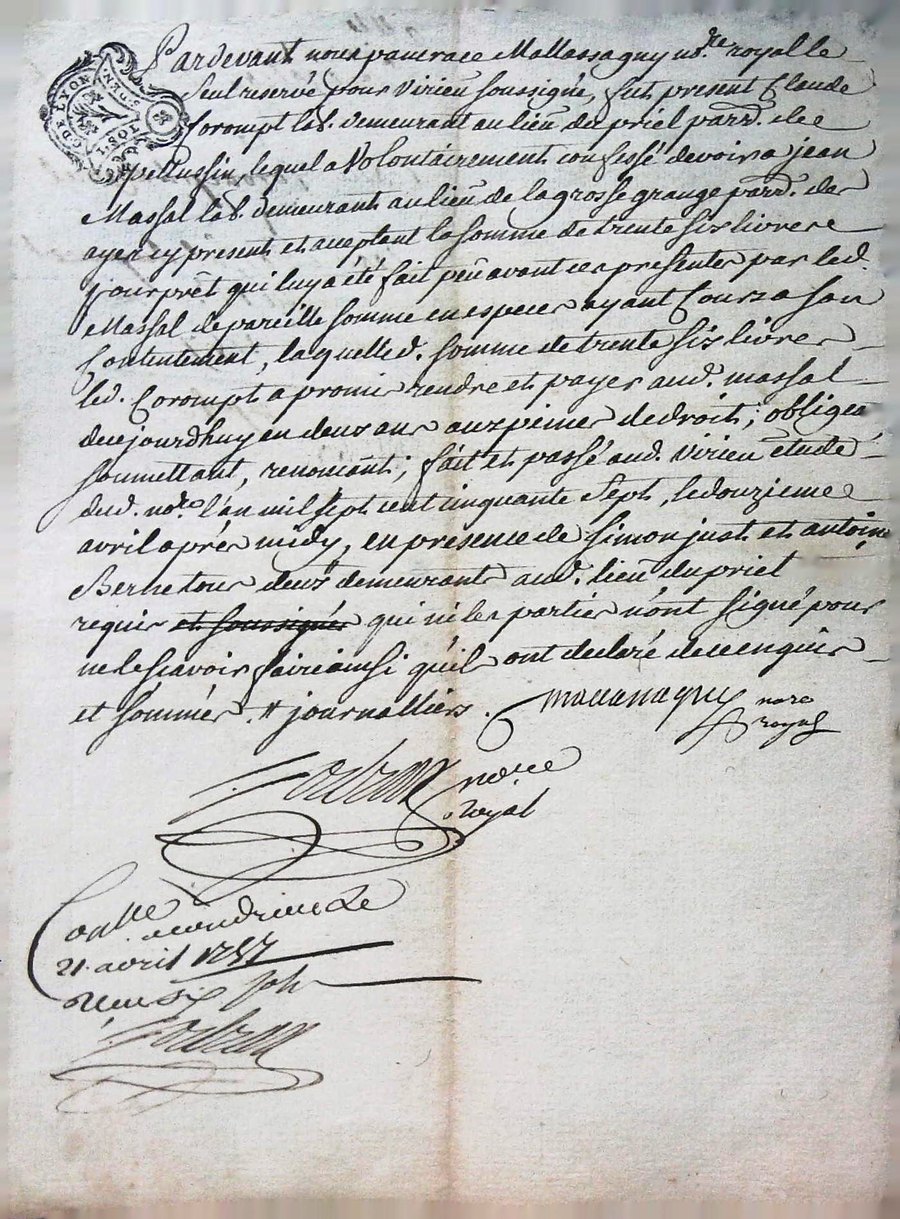 Pardevant nous pancrace Mallassagny nore royal le
seul reservé pour virieu soussigné, fut present Claude
Corompt lab. demeurant au lieu du priel parr. de
pellussin, lequel a volontairement confessé devoir a jean
Massal lab. demeurant au lieu de la grosse grange parr. de
cy present et aceptant la somme de trente six livres
pour prêt qui luy a été fait peu avant ces presentes par led.
Massal de pareille somme en especes ayant cours a son
Contentement, laquelle d. somme de trente six livres
led. Corompt a promis rendre et payer aud. massal
decejourdhuy en deux ans aux peines de droit; obligé
soumettant, renoncant; fait et passé aud. virieu étude
dud. nore l'an mil sept cent cinquante sept, le douzieme
avril aprés midy, en presence de simon just et antoine
Berne tous deux demeurants aud. lieu du priel
requis et soussignés qui ni les parties n'ont signé pour
ne le scavoir faire ainsi qu'ils ont declaré de ce enquis
et sommés. # journalliers. Mallassagny nore
royal
nore
Royal
Con.lle a condrieu Le
21 avril 1757
LYON